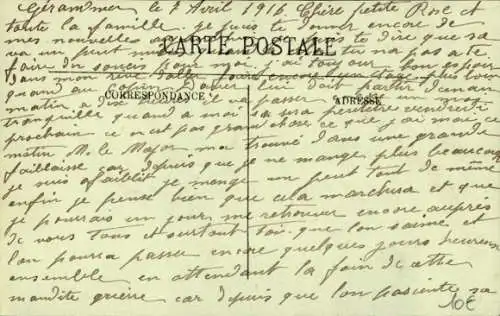 Gérardmer le 7 Avril 1916 Chère petite Rose et
toute la famille je puis te donner encore de
mes nouvelles te dire que sa
va un peut mieux tu na pas a te
CARTE POSTALE
faire du soucis pour moi j'ai toujour bon espoir
dans mon rêve encore plus loin
quand au copin lui doit partir demain
CORRESPONDANCE
ADRESSE
matin a dix va passer
tranquille quand a moi sa sera peutêtre vendredi
prochain ce n'est pas grand chose ce que j'ai moi, ce
matin M. le Major ma trouvé dans une grande
faiblaisse car depuis que je ne mange plus beaucoup
je suis afaiblit je mange un peut tout de même
enfin je pense bien que cela marchera et que
je pourrais un jour me retrouver encore auprès
de vous tous et surtout toi que l'on s'aime et
l'on pourra passer encore quelques jours heureux
ensemble en attendant la fin de cette
maudite guerre car depuis que l'on patiente sa
10€